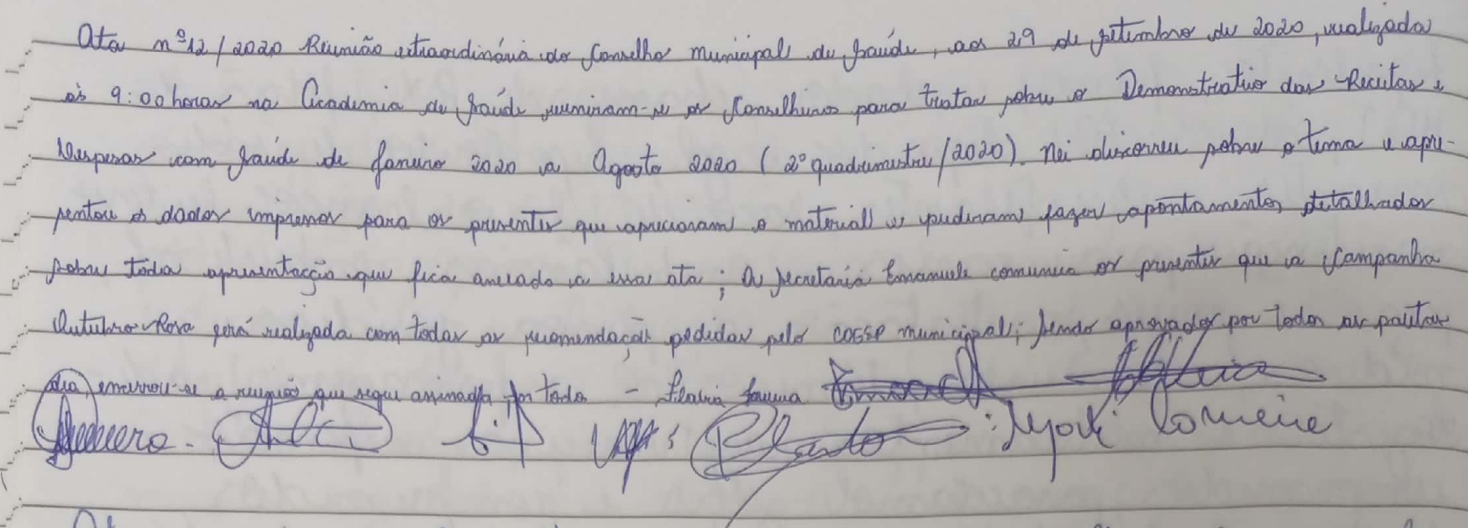 Ata nº12/2020 Reunião extraordinária do Conselho Municipal de Saúde, aos 29 de setembro de 2020, realizada
às 9:00 horas na Academia de Saúde reuniram-se os Conselheiros para tratar sobre o Demonstrativo das Receitas e
Despesas com Saúde de Janeiro 2020 a Agosto 2020 (2º quadrimestre/2020). Nei discorreu sobre o tema e apre-
sentou os dados impressos para os presentes que apreciaram o material e puderam fazer apontamentos detalhados
sobre toda apresentação que fica anexado a essa ata; A secretaria Emanuele comunica os presentes que a Campanha
Outubro Rosa será realizada com todas as recomendações pedidas pelo COESP municipal; sendo aprovados por todos as pautas
dia, encerrou-se a reunião que segue assinada por todos –